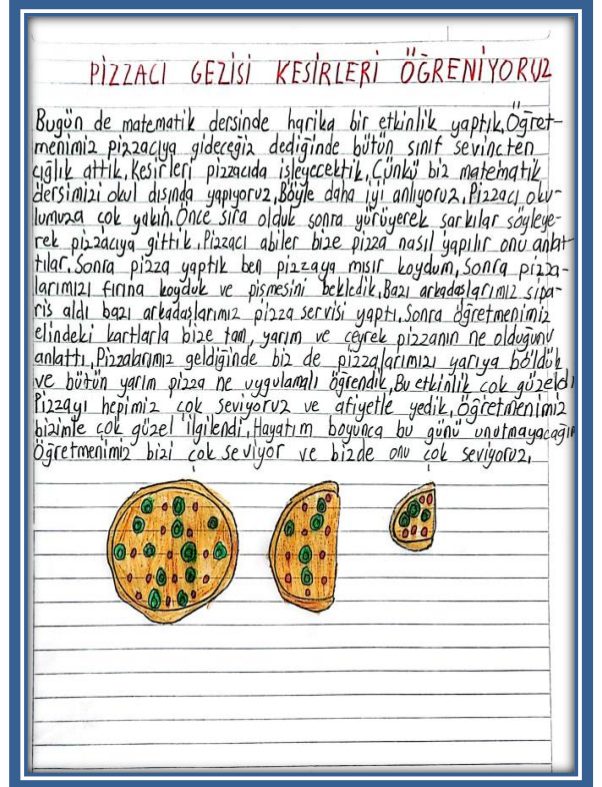 PİZZACI GEZİSİ KESİRLERİ ÖĞRENİYORUZ
Bugün de matematik dersinde harika bir etkinlik yaptık, Öğret-
menimiz pizzacıya gideceğiz dediğinde bütün sınıf sevinçten
çığlık attık, Kesirleri pizzacıda işleyecektik, Çünkü biz matematik
dersimizi okul dışında yapıyoruz, Böyle daha iyi anlıyoruz, Pizzacı oku-
lumuza çok yakın, Önce sıra olduk sonra yürüyerek şarkılar söyleye-
rek pizzacıya gittik, Pizzacı abiler bize pizza nasıl yapılır onu anlat-
tılar, Sonra pizza yaptık ben pizzaya mısır koydum, Sonra pizza-
larımızı fırına koyduk ve pişmesini bekledik, Bazı arkadaşlarımız sipa-
riş aldı bazı arkadaşlarımız pizza servisi yaptı, Sonra öğretmenimiz
elindeki kartlarla bize tam, yarım ve çeyrek pizzanın ne olduğunu
anlattı, Pizzalarımız geldiğinde biz de pizzalarımızı yarıya böldük
ve bütün yarım pizza ne uygulamalı öğrendik, Bu etkinlik çok güzeldi
Pizzayı hepimiz çok seviyoruz ve afiyetle yedik, Öğretmenimiz
bizimle çok güzel ilgilendi, Hayatım boyunca bu günü unutmayacağım
Öğretmenimiz bizi çok seviyor ve bizde onu çok seviyoruz,